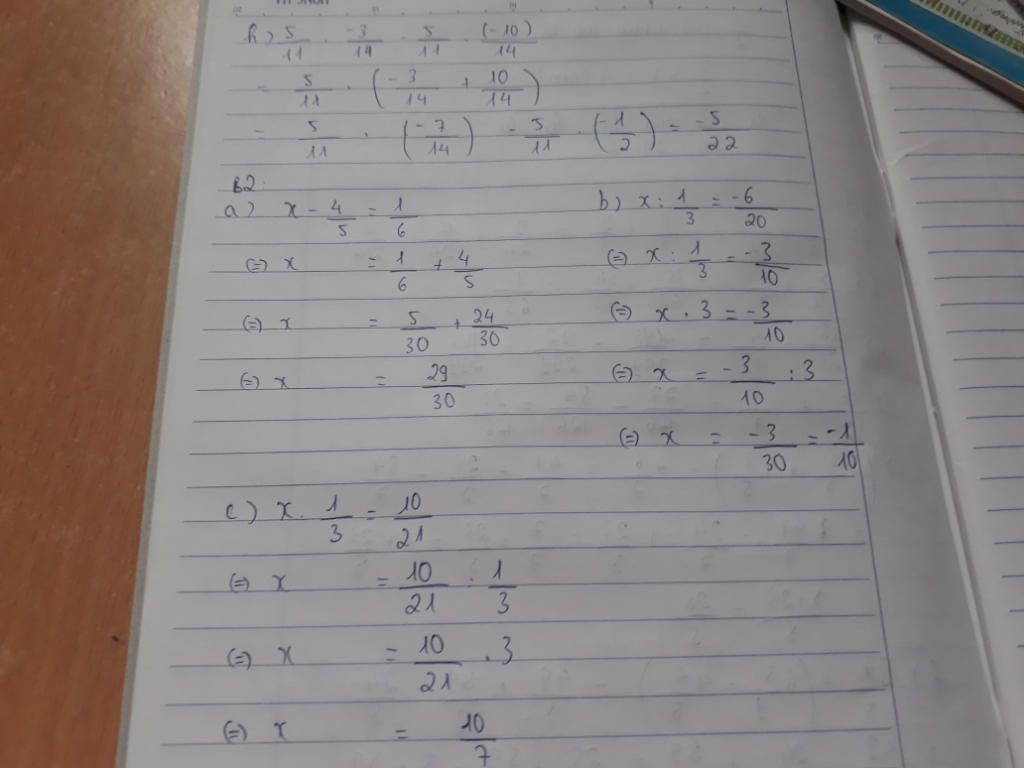 h) 5/11 . -3/14 - 5/11 . (-10)/14
= 5/11 . (-3/14 + 10/14)
= 5/11 . (-7/14) = 5/11 . (-1/2) = -5/22
B2:
a) x - 4/5 = 1/6
(=) x = 1/6 + 4/5
(=) x = 5/30 + 24/30
(=) x = 29/30
b) x : 1/3 = -6/20
(=) x : 1/3 = -3/10
(=) x . 3 = -3/10
(=) x = -3/10 : 3
(=) x = -3/30 = -1/10
c) x . 1/3 = 10/21
(=) x = 10/21 : 1/3
(=) x = 10/21 . 3
(=) x = 10/7